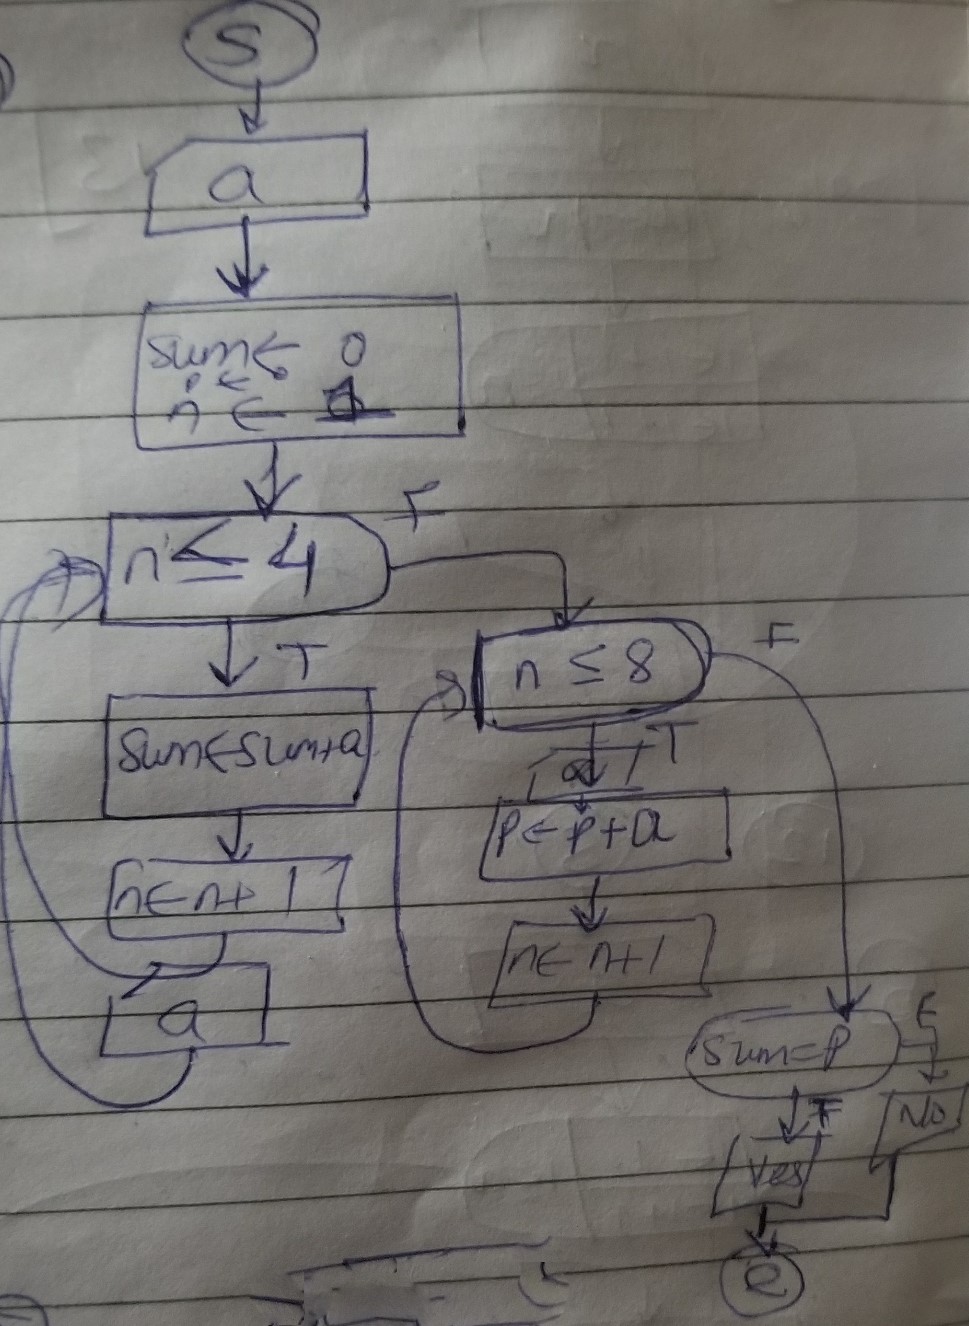 S
a
sum← 0
p ← 0
n ← 1
n ≤ 4
F
T
sum←sum+a
n←n+1
a
n ≤ 8
F
T
a
p←p+a
n←n+1
sum=p
F
T
No
Yes
e